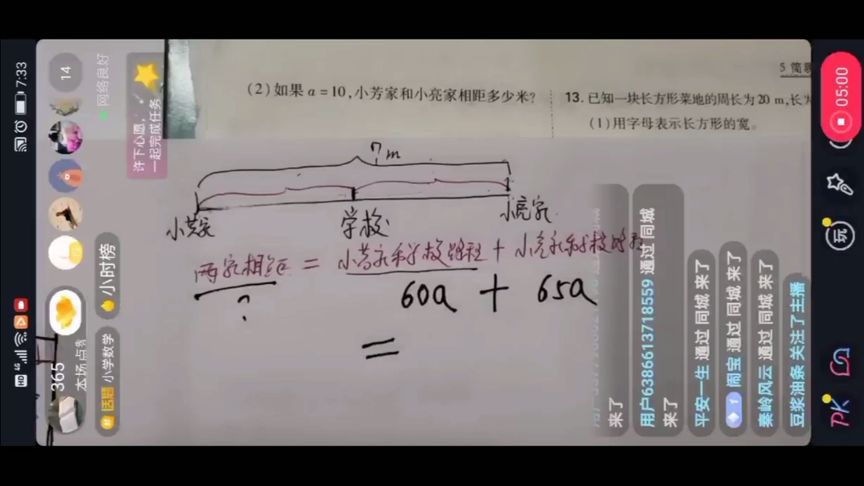 (2)如果a=10,小芳家和小亮家相距多少米?
13. 已知一块长方形菜地的周长为20 m,长为
(1)用字母表示长方形的宽。
? m
小芳家
学校
小亮家
两家相距 = 小芳家和学校路程 + 小亮家和学校路程
?
60a + 65a
=
7:33
HD 4G
14
网络良好
许下心愿,
一起完成任务
小时榜
365
本场点赞
话题 小学数学
来了
用户6386613718559 通过 同城
来了
平安一生 通过 同城 来了
1 闹宝 通过 同城 来了
秦岭风云 通过 同城 来了
豆浆油条 关注了主播
05:00
玩
PK